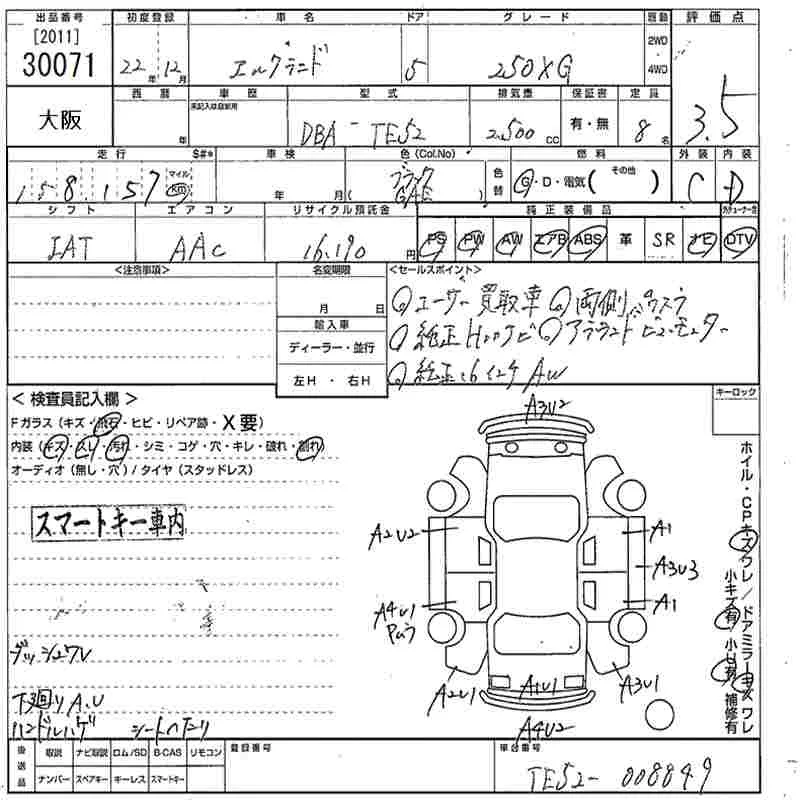 出品番号 初度登録 車名 ドア グレード 駆動 評価点
[2011] 30071 22年12月 エルグランド 5 250XG 2WD 4WD 3.5
大阪 西暦 年 車歴 未記入は自家用 型式 DBA-TE52 排気量 2.500cc 保証書 有・無 定員 8名
走行 S#* 車検 色(Col.No) 色替 燃料 外装 内装
158,157 マイル Km 年 月 ブラック ( GAE ) G・D・電気( その他 ) C D
シフト エアコン リサイクル預託金 純正装備品
IAT AAC 16,190円 PS PW AW エアB ABS 革 SR ナビ DTV
<注意事項> 名変期限 <セールスポイント>
月 日 ユーザー買取車 両側パワスラ
輸入車 純正HDDナビ アラウンドビューモニター
ディーラー・並行 純正16インチAW
左H・右H
<検査員記入欄> キーロック
Fガラス(キズ・飛石・ヒビ・リペア跡・X要)
内装(キズ・スレ・汚れ・シミ・コゲ・穴・キレ・破れ・割れ)
オーディオ(無し・穴)/タイヤ(スタッドレス)
スマートキー車内
A3U2
A2U2 A1
A3U3
A4U1 A1
Pムラ
A2U1 A1U1 A3U1
A4U2
ホイル・CPキズワレ/ドアミラーキズワレ
小キズ有 小U有 補修有
ダッシュワレ
下廻りA.U
ハンドルハゲ シートヘタリ
後送品 取説 ナビ取説 ロム/SD B-CAS リモコン 登録番号 車台番号
ナンバー スペアキー キーレス スマートキー TE52-008849